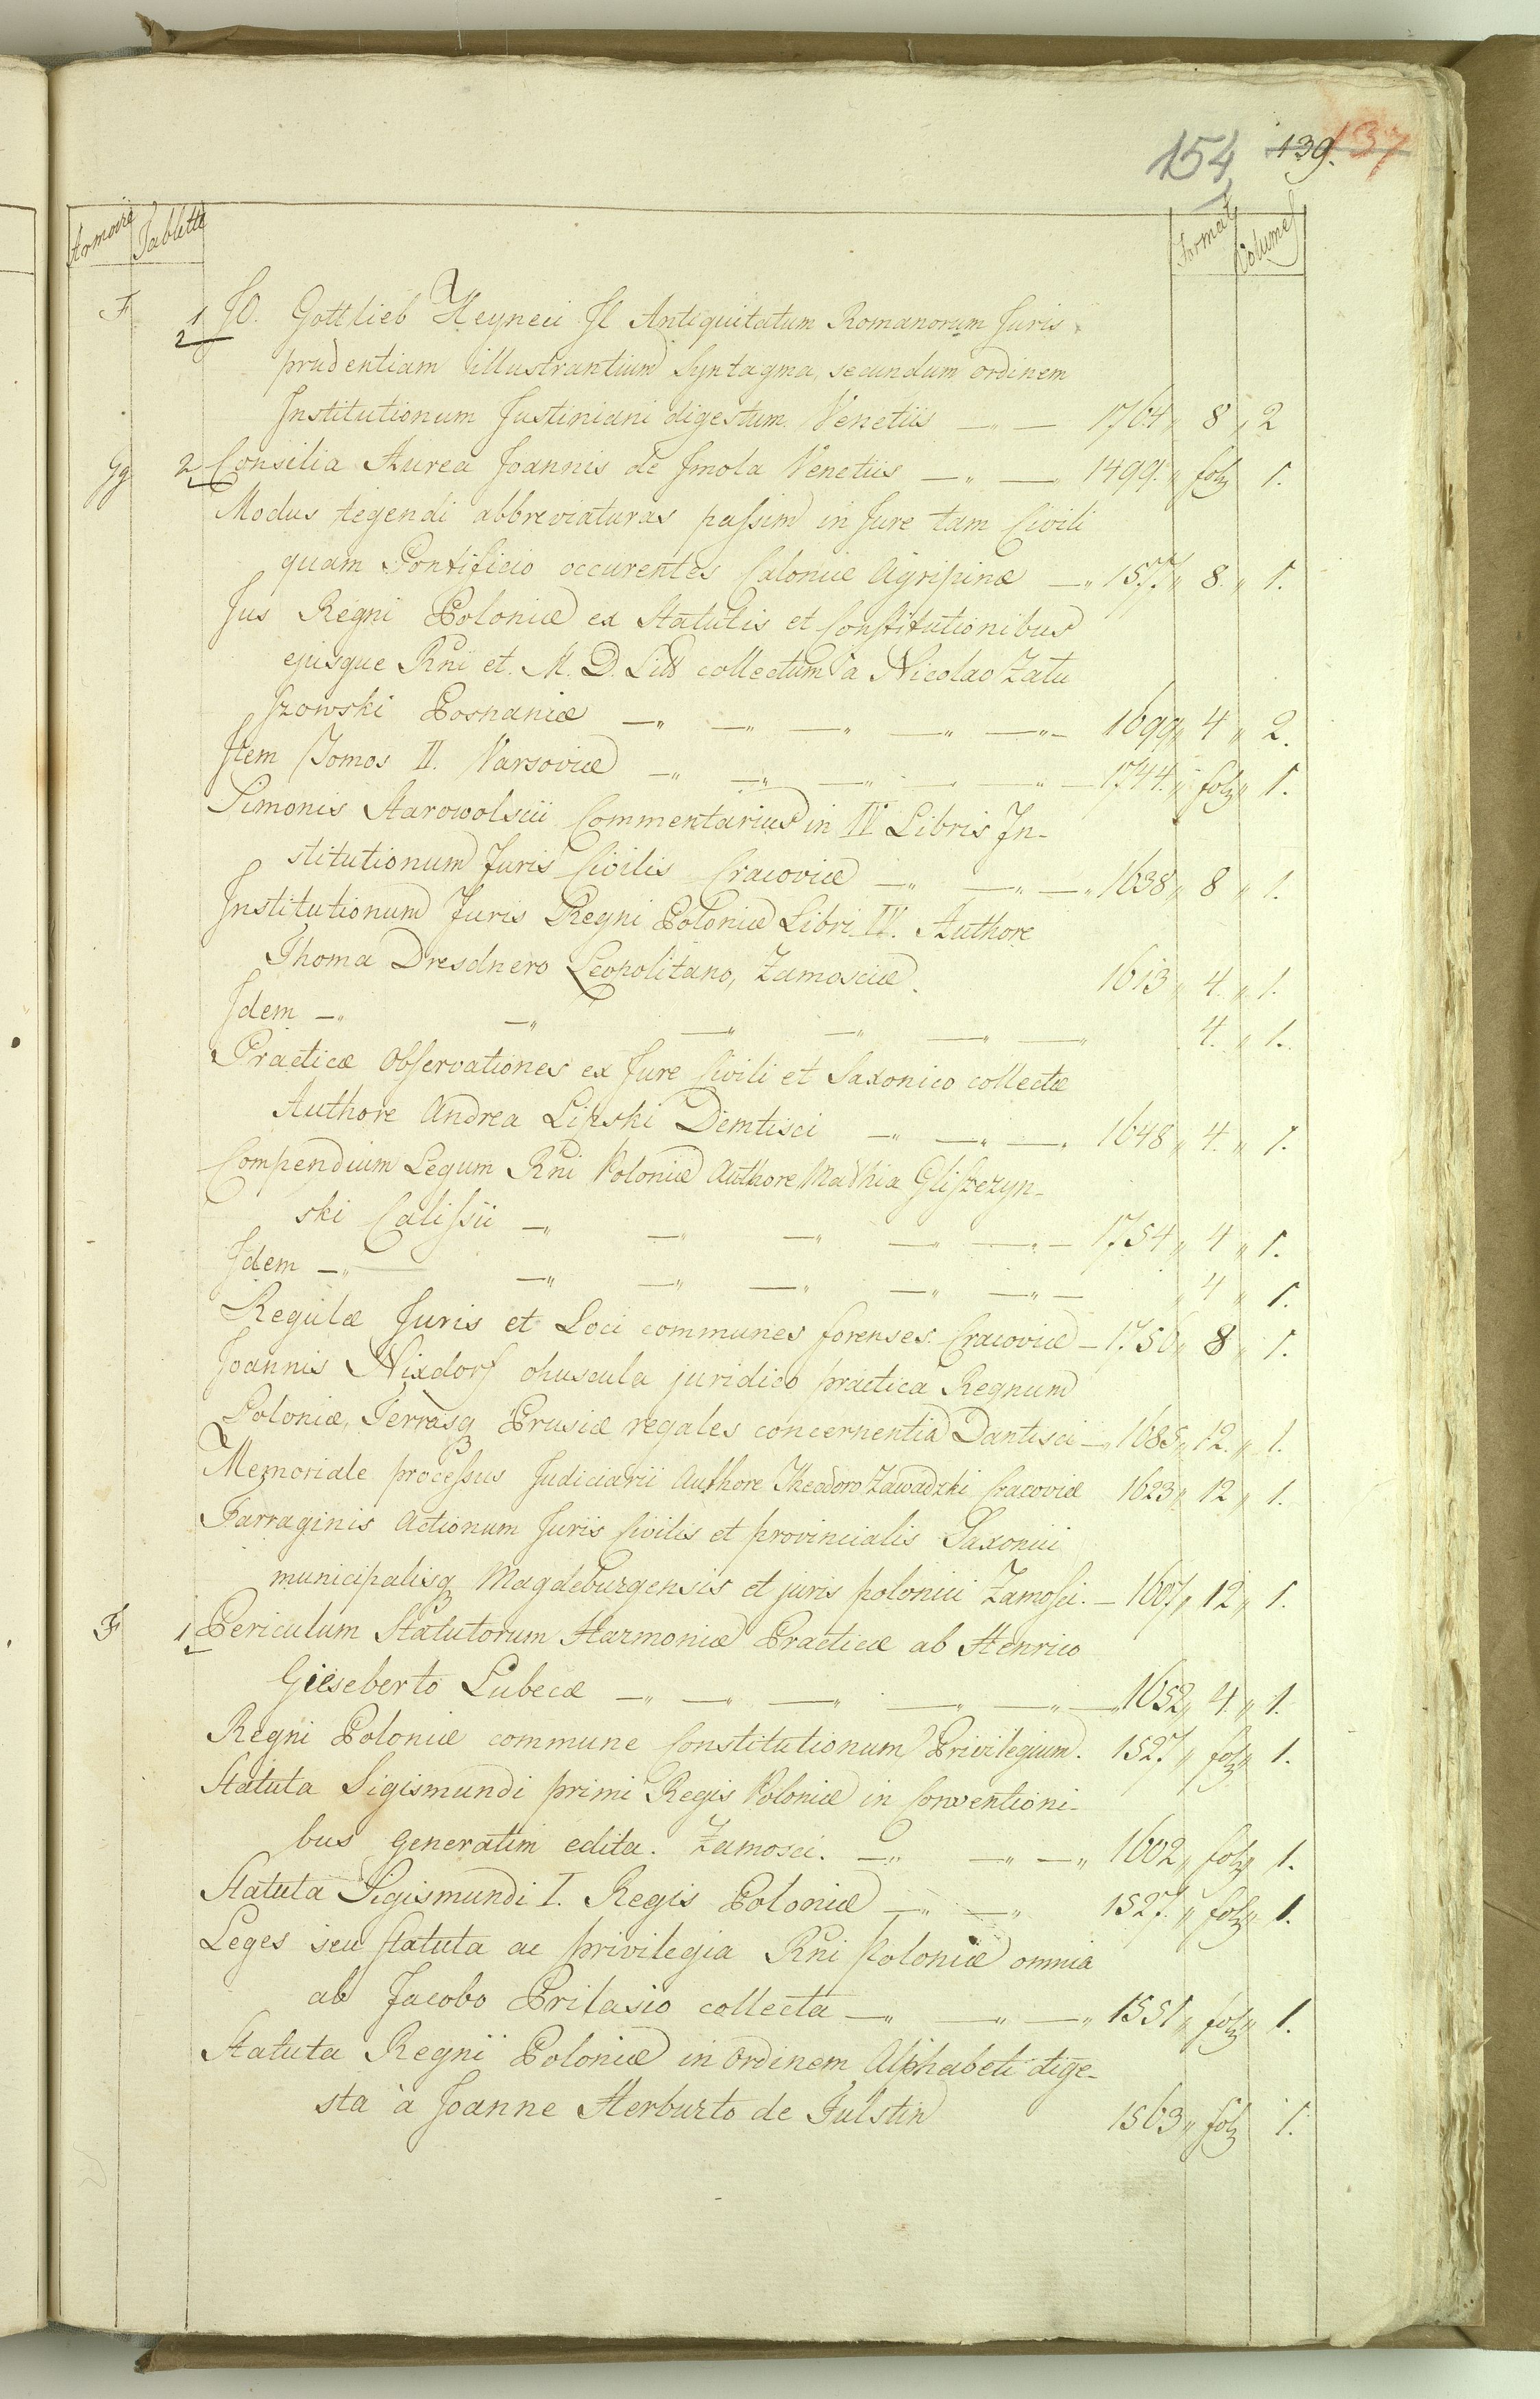 154 139. 137
Armoire Tablette Format Volumes
F 1/2 JO. Gottlieb Heyneii Jl Antiquitatum Romanorum Juris
prudentiam illustrantium Syntagma, secundum ordinem
Institutionum Justiniani digestum. Venetiis —"— 1764 " 8 " 2
Gg 2 Consilia Aurea Joannis de Imola Venetiis —"—" 1499 " fol 1.
Modus legendi abbreviaturas passim in Jure tam Civili
quam Pontificio occurentes Coloniæ Agripinæ —" 1577 " 8 " 1.
Jus Regni Poloniæ ex Statutis et Constitutionibus
ejusque Rni et M. D. Litt collectum a Nicolao Zału
szowski Posnaniæ —" —" —" —" —"— 1699 " 4 " 2.
Item Tomos II. Varsoviæ —" —" —" —" —" — 1744 " fol " 1.
Simonis Starowolscii Commentarius in IV Libris In-
stitutionum Juris Civilis Cracoviæ —" —" —" 1638 " 8 " 1.
Institutionum Juris Regni Poloniæ Libri IV. Authore
Thoma Dresdnero Leopolitano, Zamosciæ. 1613 " 4 " 1.
Idem —" —" —" —" —" —" 4. " 1.
Practicæ Observationes ex Jure Civili et Saxonico collectæ
Authore Andrea Lipski Demtisci —" —" —" 1648 " 4. " 1.
Compendium Legum Rni Poloniæ Authore Mathia Gliszczyn-
ski Calissii —" —" —" —" —"— 1754 " 4 " 1.
Idem —" —" —" —" —" —"— " 4 " 1.
Regulæ Juris et Loci communes forenses. Cracoviæ — 1750 " 8 " 1.
Joannis Nixdorf opuscula juridico practica Regnum
Poloniæ, Terrasq Prusiæ regales concernentia Dantisci —" 1685 " 12. " 1.
Memoriale processus Judiciarii Authore Theodoro Zawadzki Cracoviæ 1623 " 12 " 1.
Farraginis Actionum Juris Civilis et provincialis Saxonici
municipalisq Magdeburgensis et juris polonici Zamosci. — 1607 " 12 " 1.
F 1 Periculum Statutorum Harmoniæ Practicæ ab Henrico
Gieseberto Lubecæ —" —" —" —" —" —" 1652 " 4 " 1.
Regni Poloniæ commune Constitutionum Privilegium. 1527 " fol " 1.
Statuta Sigismundi primi Regis Poloniæ in Conventioni-
bus generatim edita. Zamosci. —" —" —" 1602 " fol " 1.
Statuta Sigismundi I. Regis Poloniæ —" —" 1527. " fol " 1.
Leges seu statuta ac privilegia Rni Poloniæ omnia
ab Jacobo Prilasio collecta —" —" —" 1551 " fol " 1.
Statuta Regni Poloniæ in Ordinem Alphabeti dige-
sta à Joanne Herburto de Fulstin 1563 " fol 1.